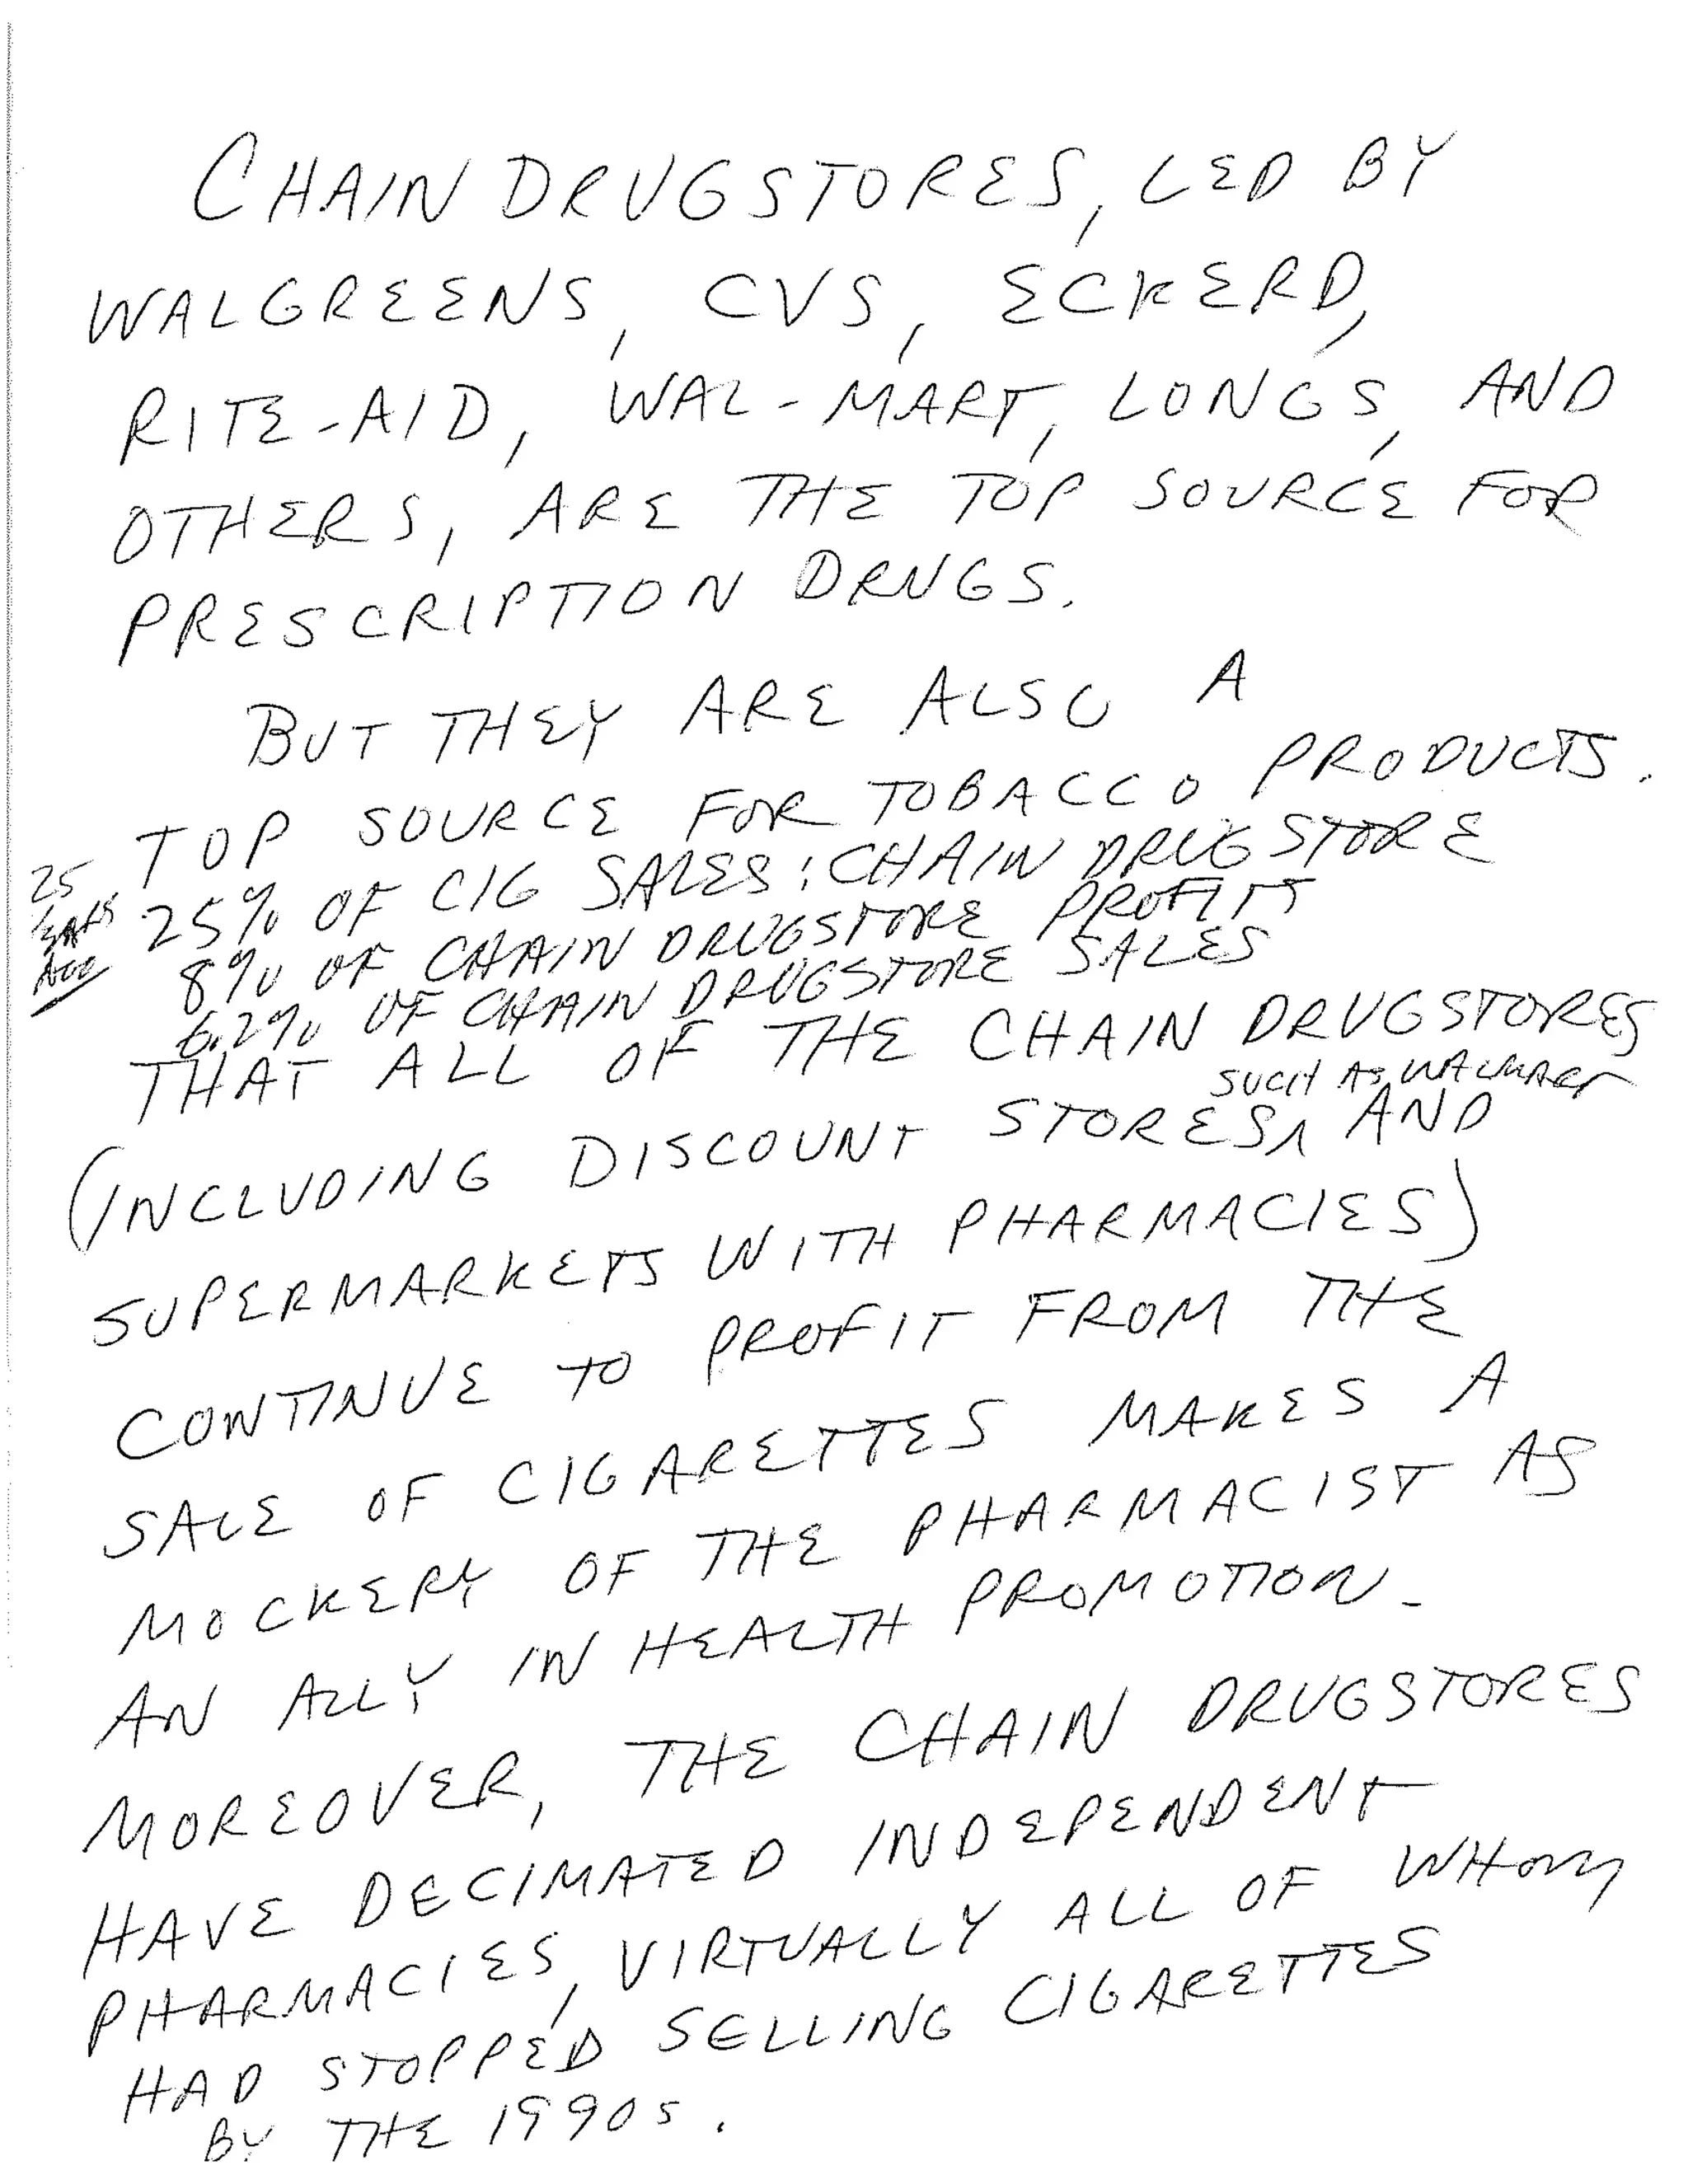 CHAIN DRUGSTORES, LED BY
WALGREENS, CVS, ECKERD,
RITE-AID, WAL-MART, LONGS, AND
OTHERS, ARE THE TOP SOURCE FOR
PRESCRIPTION DRUGS.
BUT THEY ARE ALSO A
TOP SOURCE FOR TOBACCO PRODUCTS.
25
YEARS
AGO
25% OF CIG SALES: CHAIN DRUGSTORE
8% OF CHAIN DRUGSTORE PROFITS
6.2% OF CHAIN DRUGSTORE SALES
THAT ALL OF THE CHAIN DRUGSTORES
SUCH AS WALMART
(INCLUDING DISCOUNT STORES, AND
SUPERMARKETS WITH PHARMACIES)
CONTINUE TO PROFIT FROM THE
SALE OF CIGARETTES MAKES A
MOCKERY OF THE PHARMACIST AS
AN ALLY IN HEALTH PROMOTION.
MOREOVER, THE CHAIN DRUGSTORES
HAVE DECIMATED INDEPENDENT
PHARMACIES, VIRTUALLY ALL OF WHOM
HAD STOPPED SELLING CIGARETTES
BY THE 1990s.